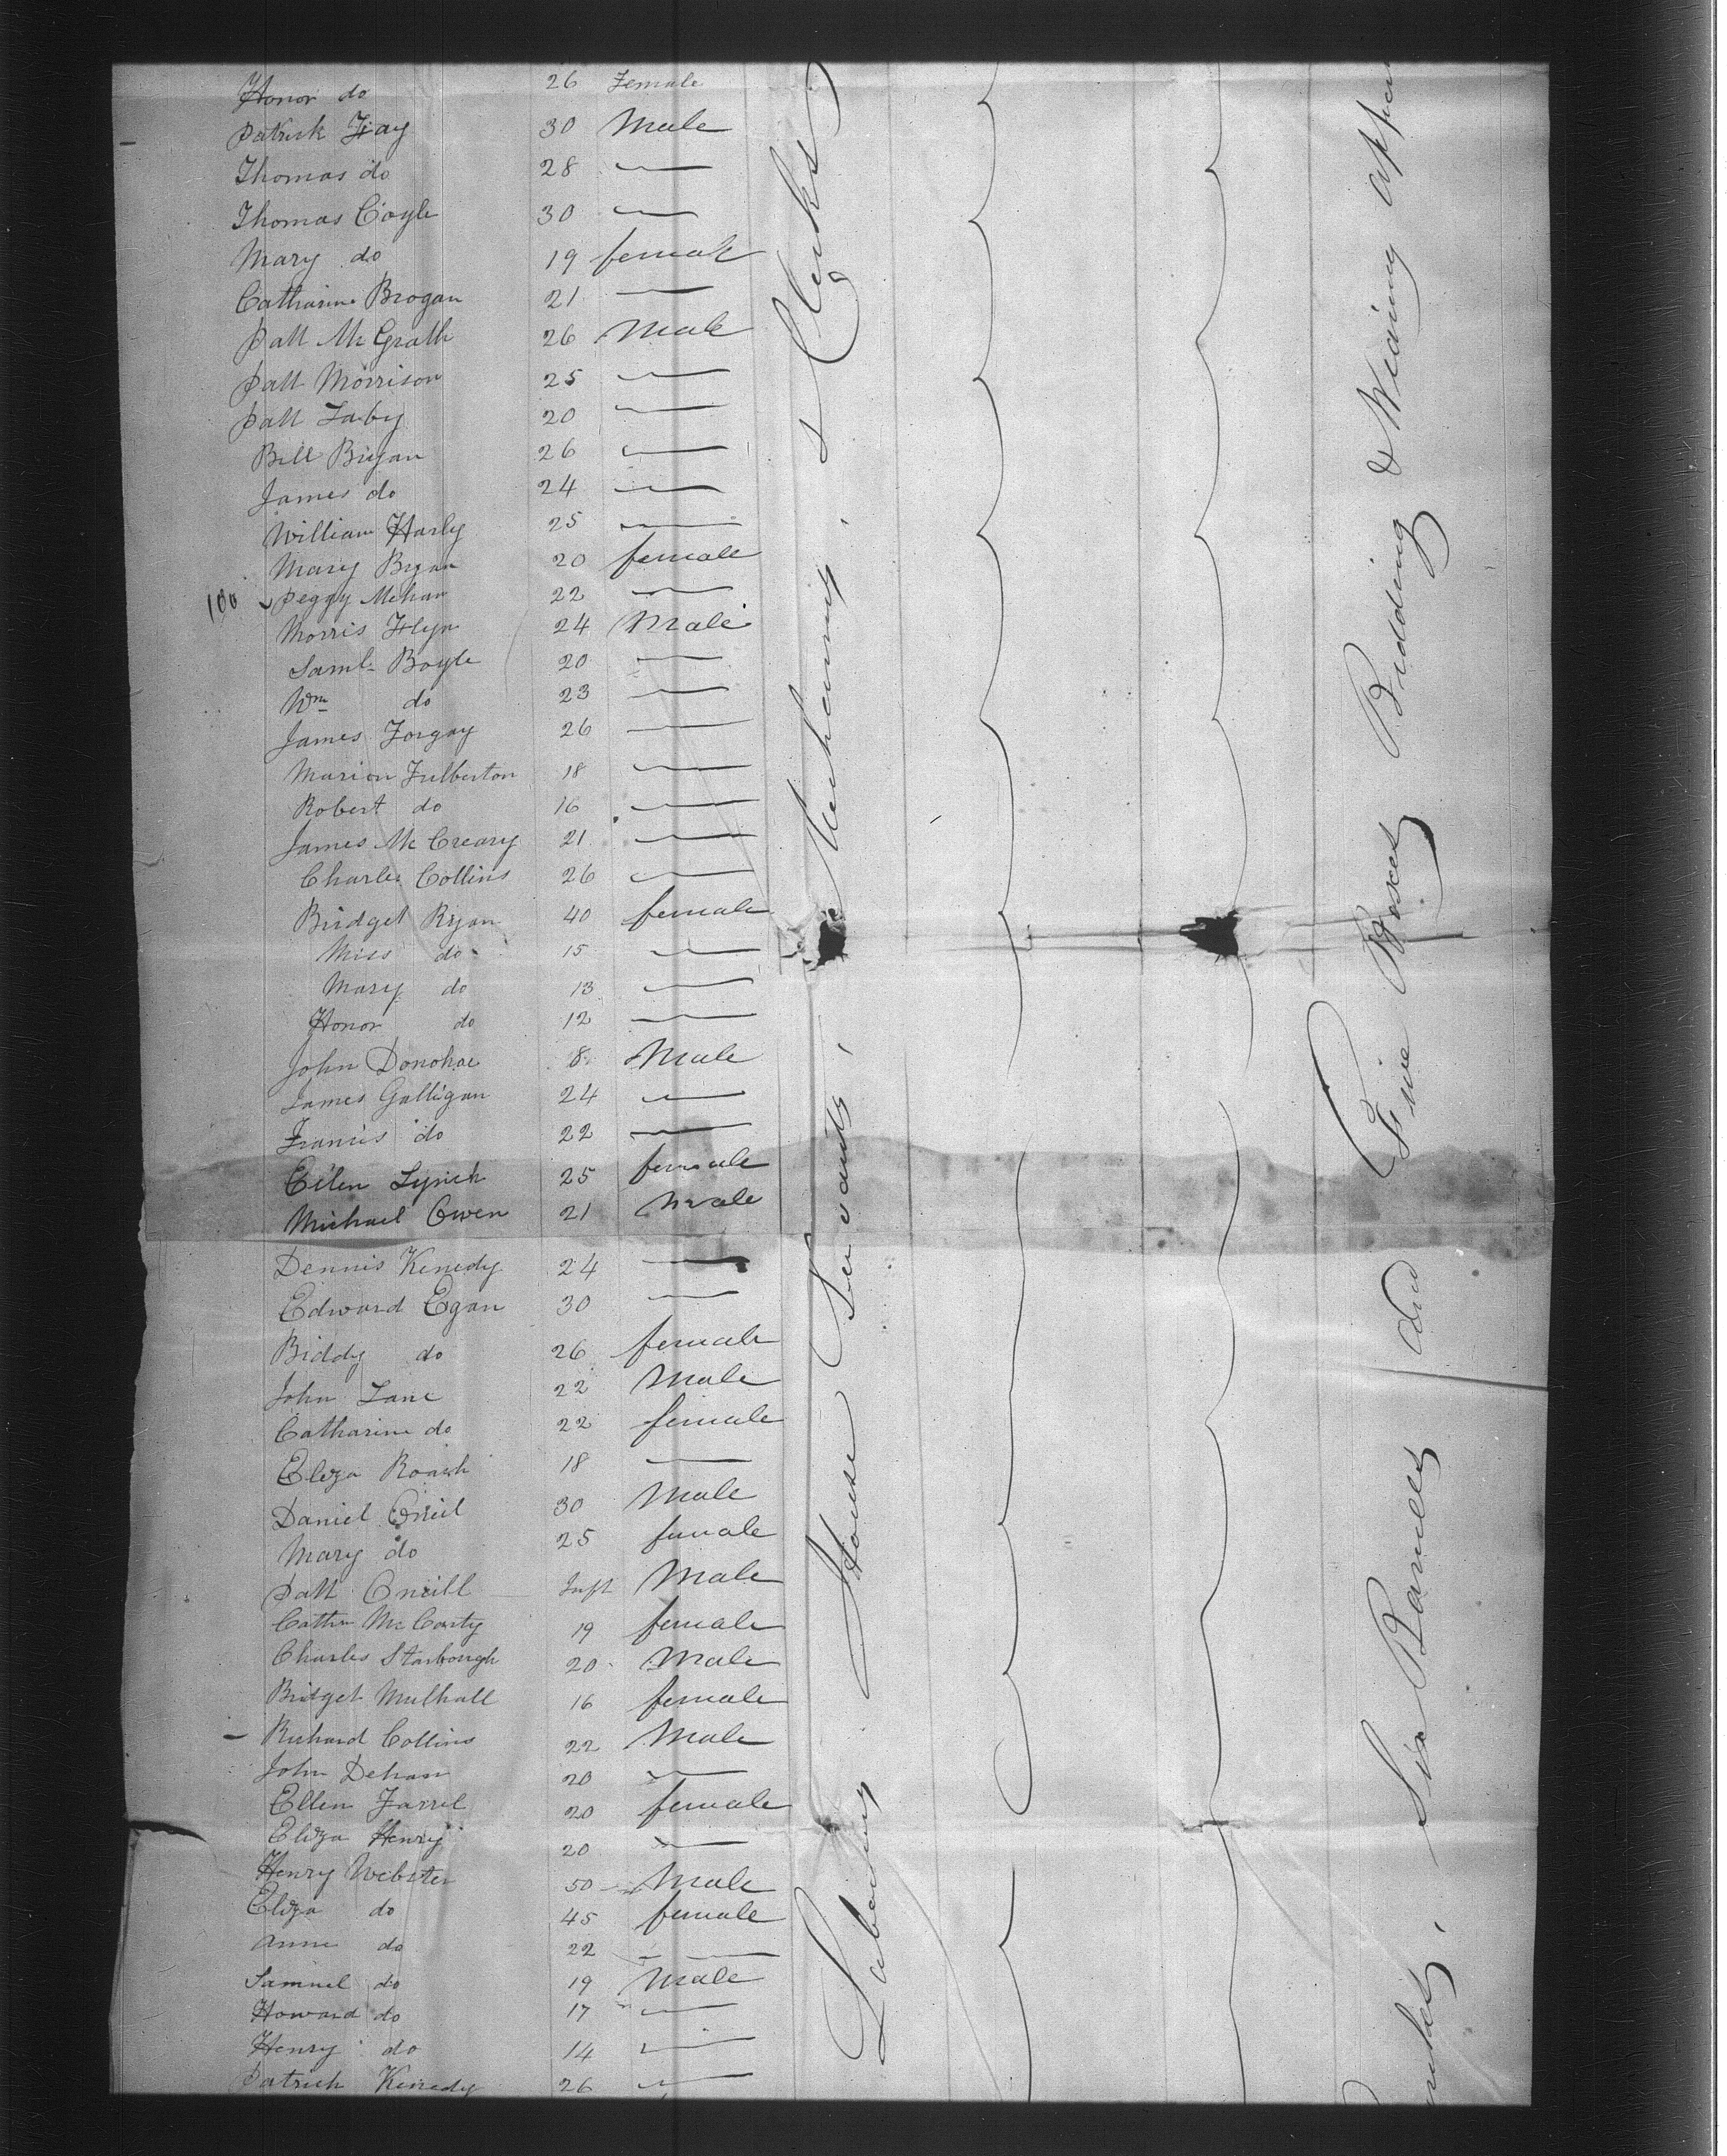 Honor do 26 Female
Patrick Fay 30 Male
Thomas do 28 —
Thomas Coyle 30 —
Mary do 19 female
Catharine Brogan 21 —
Patt McGrath 26 Male
Patt Morrison 25 —
Patt 20 —
Bill Bryan 26 —
James do 24 —
William Harly 25 —
Mary Bryan 20 female
100 Peggy Mehan 22 —
Morris Flyn 24 Male
Saml Boyle 20 —
Wm do 23 —
James Forgay 26 —
Marion Fulberton 18 —
Robert do 16 —
James McCreary 21 —
Charles Collins 26 —
Bridget Ryan 40 female
Miss do 15 —
Mary do 13 —
Honor do 12 —
John Donohoe 8 Male
James Galligan 24 —
Francis do 22 —
Ellen Lynch 25 female
Michael Owen 21 Male
Dennis Kenedy 24 —
Edward Egan 30 —
Biddy do 26 female
John Lane 22 Male
Catharine do 22 female
Eliza Roach 18 —
Daniel Oneil 30 Male
Mary do 25 female
Patt Oneill Inft Male
Cathn McCarty 19 female
Charles Starbough 20 Male
Bridget Mulhall 16 female
Richard Collins 22 Male
John Dehan 20 —
Ellen Farrel 20 female
Eliza Henry 20 —
Henry Webster 50 Male
Eliza do 45 female
Anne do 22 —
Samuel do 19 Male
Howard do 17 —
Henry do 14 —
Patrick Kenedy 26 —
Labouring House Servants, Mechanics, & Clerks
Six Barrells and Five Boxes Bedding & Wearing appear